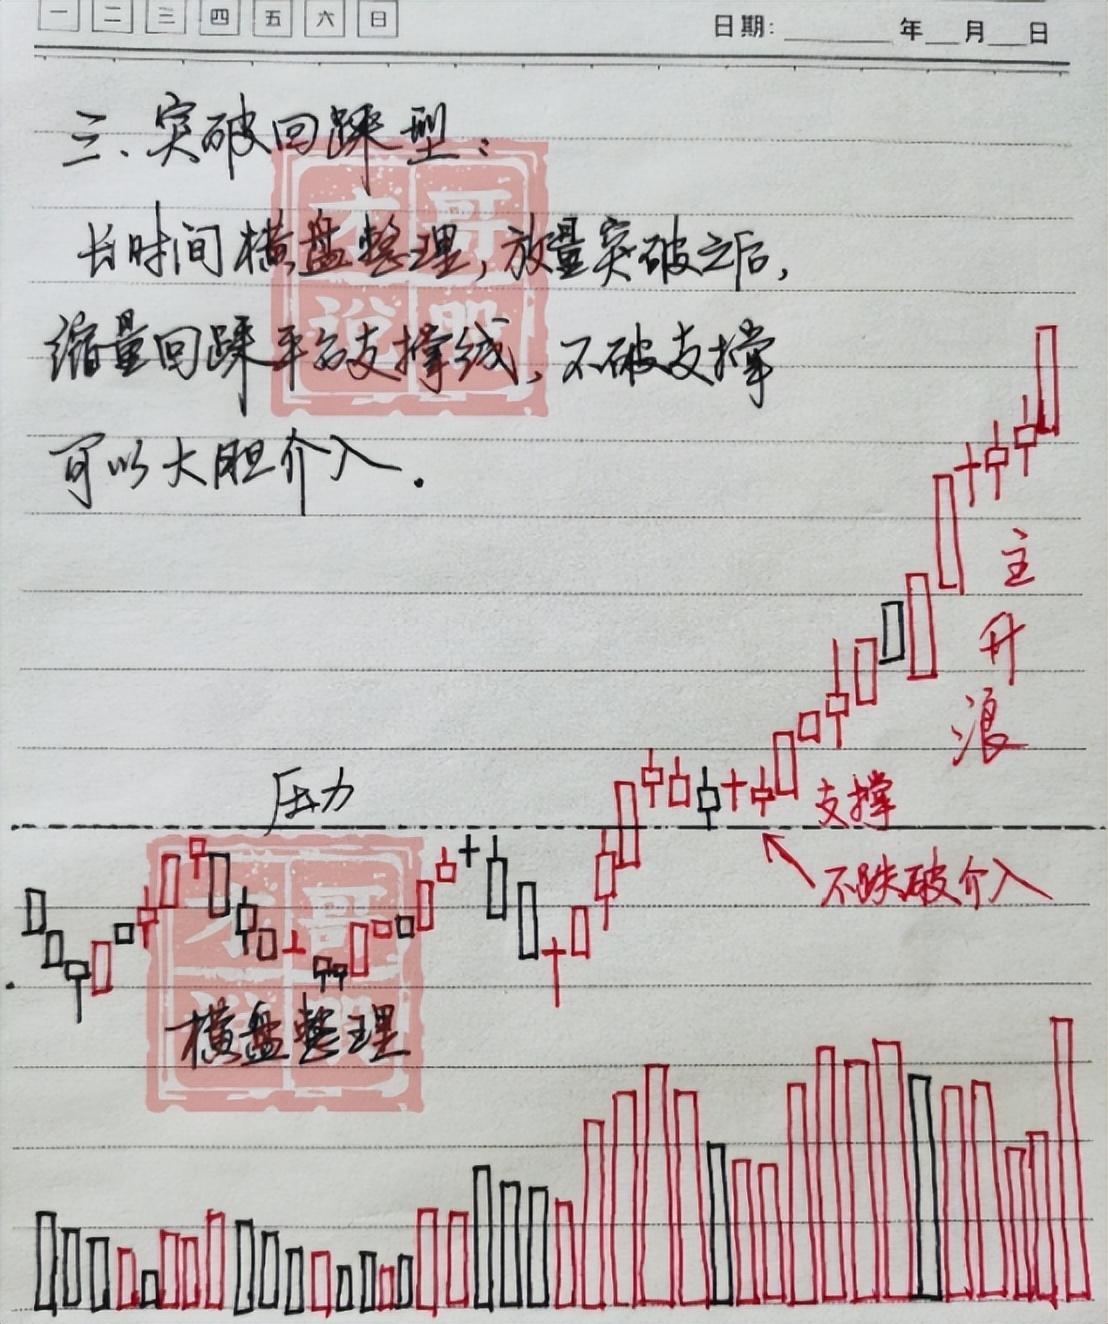 一 二 三 四 五 六 日
日期: 年 月 日
三、突破回踩型：
长时间横盘整理，放量突破之后，
缩量回踩平台支撑线，不破支撑
可以大胆介入.
才哥
说股
主升浪
压力
支撑
不跌破介入
才哥
说股
横盘整理